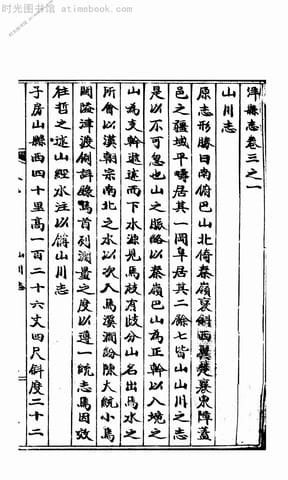 时光图书馆 · atimebook.com
洋縣志卷三之一
山川志
原志形勝曰南俯巴山北倚秦嶺襃斜西翼儻襄東障蓋
邑之疆域平疇居其一岡阜居其二餘七皆山山川之志
是以不可忽也山之脈絡以秦嶺巴山為正幹以入境之
山為支幹遞述而下水源見焉枝有歧分山名出焉水之
所會以漢朝宗南北之水以次入焉溪澗畎陳大統小焉
關隘津渡例詳錄焉首列測量之度以遵一統志焉因效
往哲之述山經水注以備山川志
子房山縣西四十里高一百二十六丈四尺斜度二十二
山川志